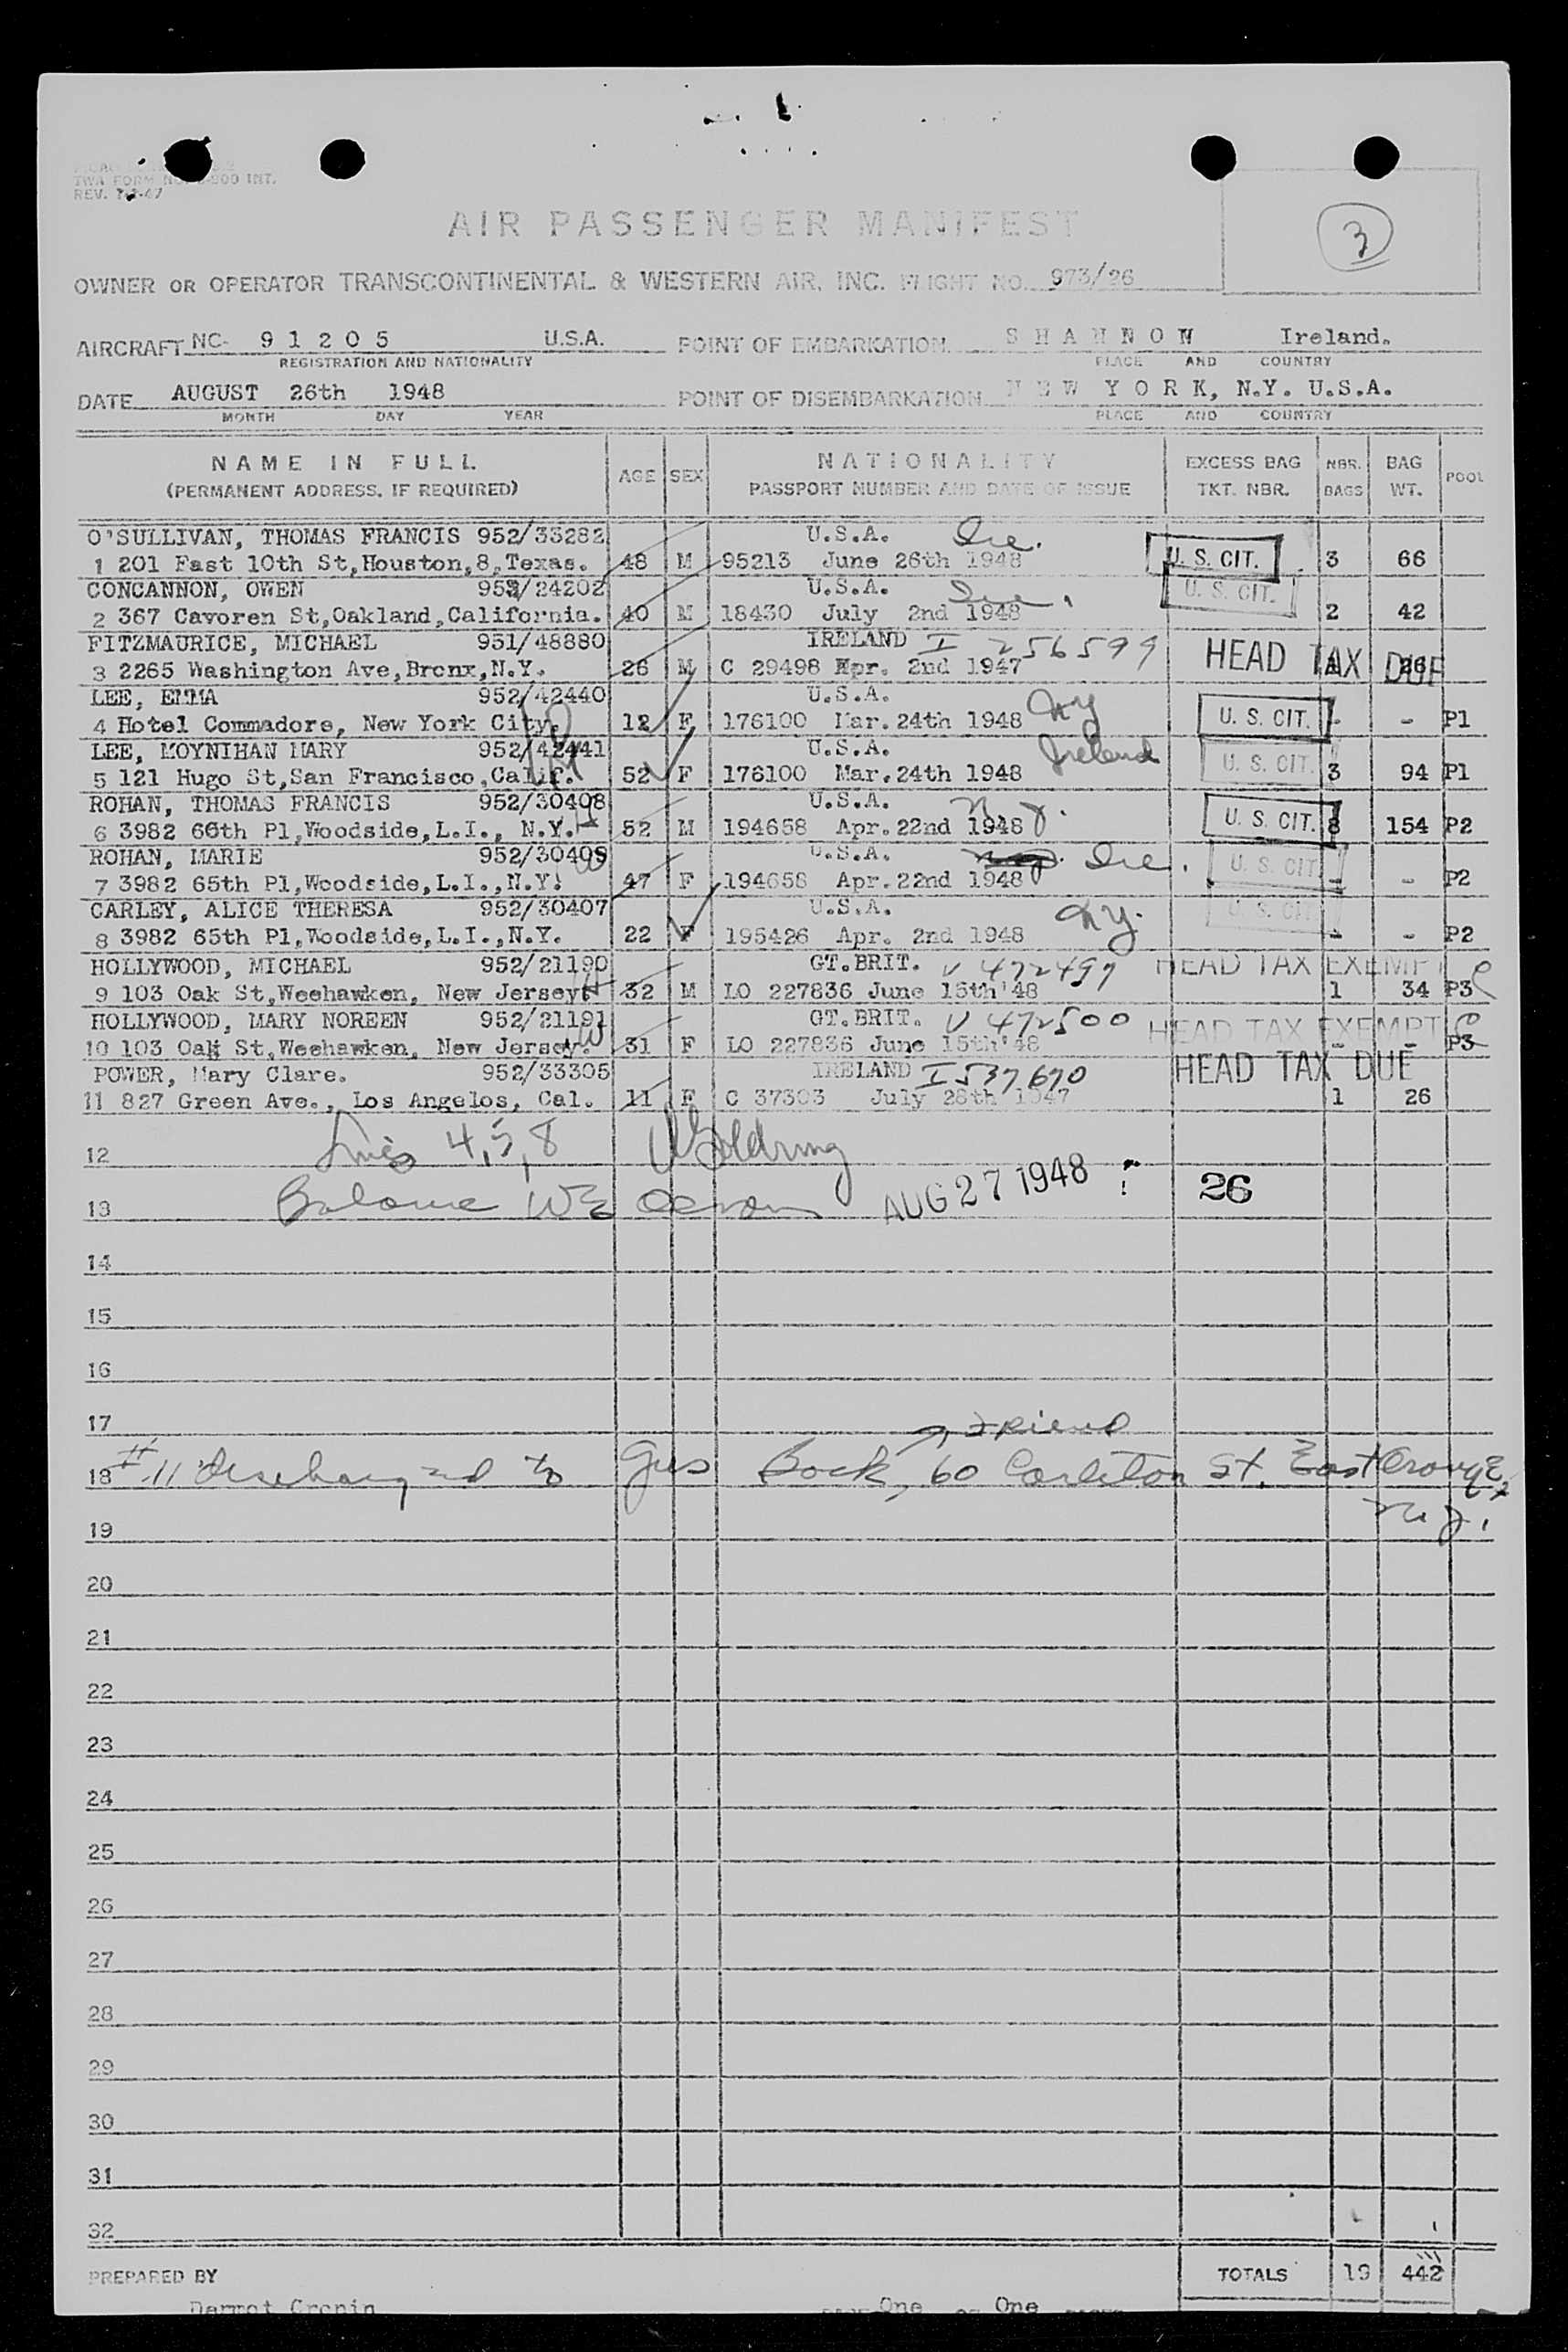 TWA FORM NO. INT.
REV.
AIR PASSENGER MANIFEST
3
OWNER OR OPERATOR TRANSCONTINENTAL & WESTERN AIR, INC. FLIGHT NO. 973/26
AIRCRAFT NC- 9 1 2 0 5 U.S.A. POINT OF EMBARKATION. S H A N N O N Ireland.
REGISTRATION AND NATIONALITY PLACE AND COUNTRY
DATE AUGUST 26th 1948 POINT OF DISEMBARKATION N E W Y O R K, N.Y. U.S.A.
MONTH DAY YEAR PLACE AND COUNTRY
NAME IN FULL AGE SEX NATIONALITY EXCESS BAG NBR. BAG POOL
(PERMANENT ADDRESS, IF REQUIRED) PASSPORT NUMBER AND DATE OF ISSUE TKT. NBR. BAGS WT.
O'SULLIVAN, THOMAS FRANCIS 952/33282 U.S.A. Ire.
1 201 East 10th St,Houston,8,Texas. 48 M 95213 June 26th 1948 U. S. CIT. 3 66
CONCANNON, OWEN 953/24202 U.S.A. Ire. U. S. CIT.
2 367 Cavoren St,Oakland,California. 40 M 18430 July 2nd 1948 2 42
FITZMAURICE, MICHAEL 951/48880 IRELAND I 256599
3 2265 Washington Ave,Bronx,N.Y. 26 M C 29498 Apr. 2nd 1947 HEAD TAX DUE
LEE, EMMA 952/42440 U.S.A. NY
4 Hotel Commadore, New York City. 12 F 176100 Mar.24th 1948 U. S. CIT. - - P1
LEE, MOYNIHAN MARY 952/42441 U.S.A. Ireland
5 121 Hugo St,San Francisco,Calif. 52 F 176100 Mar.24th 1948 U. S. CIT. 3 94 P1
ROHAN, THOMAS FRANCIS 952/30408 U.S.A. N.Y.
6 3982 66th Pl,Woodside,L.I., N.Y. 52 M 194658 Apr.22nd 1948 U. S. CIT. 8 154 P2
ROHAN, MARIE 952/30409 U.S.A. Ire.
7 3982 65th Pl,Woodside,L.I.,N.Y. 47 F 194658 Apr.22nd 1948 U. S. CIT. - - P2
CARLEY, ALICE THERESA 952/30407 U.S.A. NY. U. S. CIT.
8 3982 65th Pl,Woodside,L.I.,N.Y. 22 F 195426 Apr. 2nd 1948 - - P2
HOLLYWOOD, MICHAEL 952/21190 GT.BRIT. V 472499 HEAD TAX EXEMPT
9 103 Oak St,Weehawken, New Jersey. 32 M LO 227836 June 15th'48 1 34 P3
HOLLYWOOD, MARY NOREEN 952/21191 GT.BRIT. V 472500 HEAD TAX EXEMPT
10 103 Oak St,Weehawken, New Jersey. 31 F LO 227836 June 15th'48 - - P3
POWER, Mary Clare. 952/33305 IRELAND I537670 HEAD TAX DUE
11 827 Green Ave., Los Angelos, Cal. 11 F C 37303 July 28th 1947 1 26
12 Lines 4,5,8 Goldring
13 Balance AUG 27 1948 26
14
15
16
17 Friend
18 #11 discharged to Gus Bock, 60 Carleton St. East Orange,
N.J.
19
20
21
22
23
24
25
26
27
28
29
30
31
32
PREPARED BY TOTALS 19 442
Dermot Cronin One One